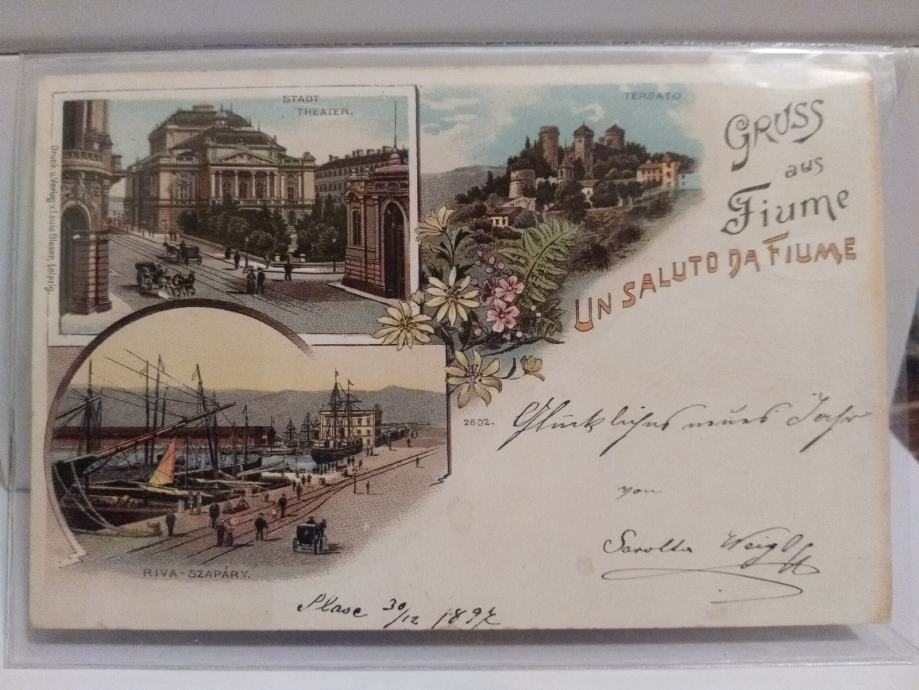 STADT
THEATER.
TERSATO
GRUSS
aus
Fiume
UN SALUTO DA FIUME
Druck u. Verlag v. Louis Glaser, Leipzig.
2602.
Glückliches neues Jahr
von
Sarolta Weigl
RIVA-SZAPÁRY.
30/12 1897